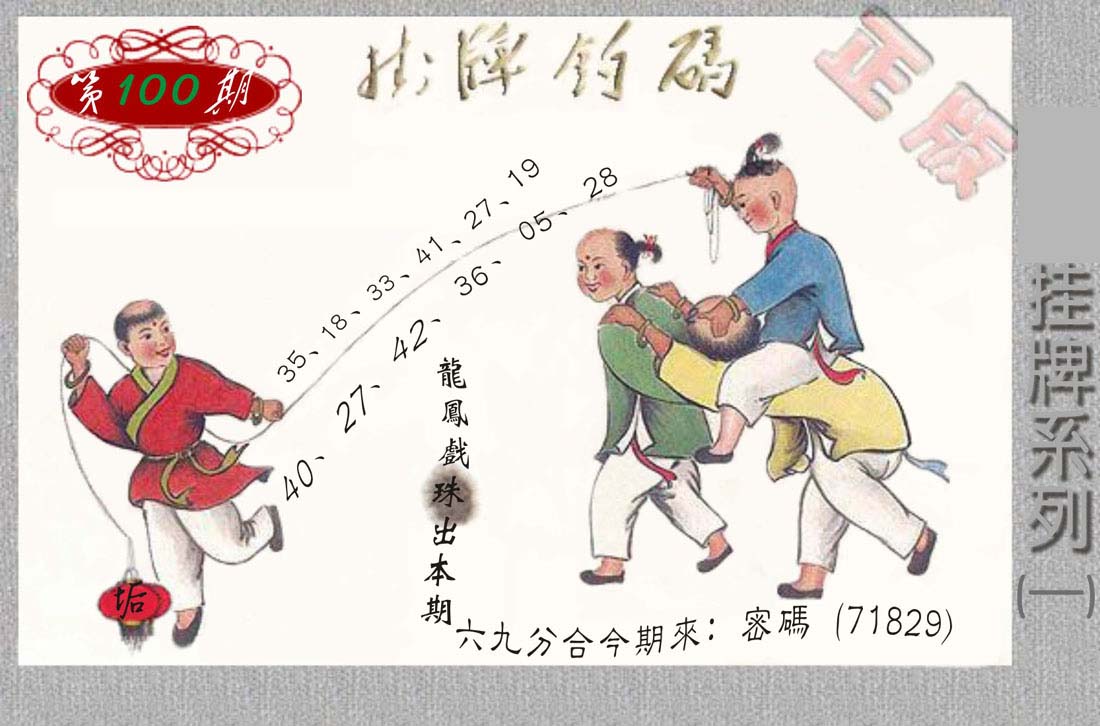 第100期
掛牌釣碼
正版
35、18、33、41、27、19
40、27、42、36、05、28
龍鳳戲珠出本期
垢
六九分合今期來：密碼 (71829)
挂牌系列(一)